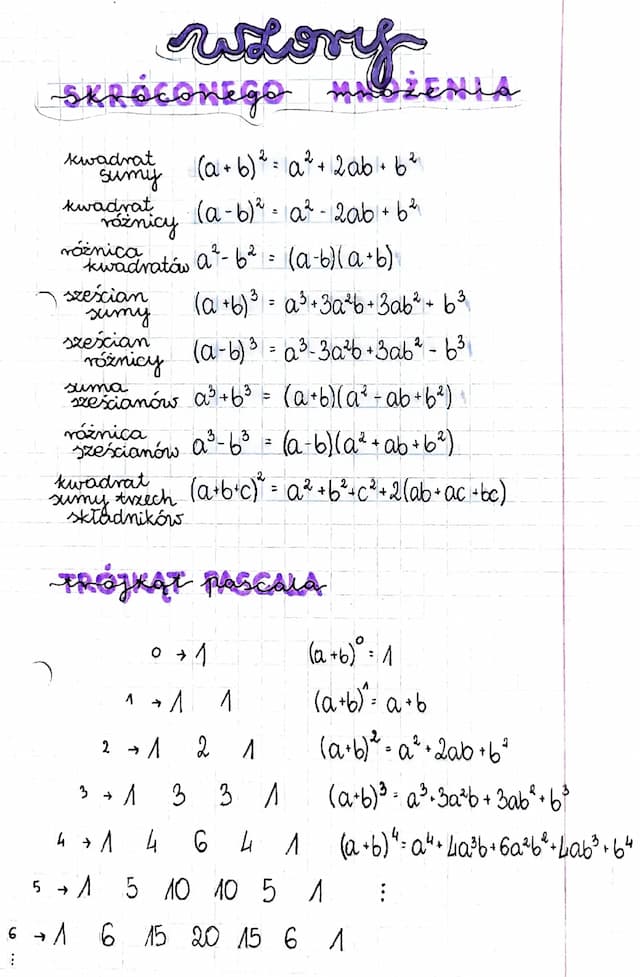 wzory
SKRÓCONEGO MNOŻENIA
kwadrat sumy (a+b)² = a² + 2ab + b²
kwadrat różnicy (a-b)² = a² - 2ab + b²
różnica kwadratów a² - b² = (a-b)(a+b)
sześcian sumy (a+b)³ = a³+3a²b+3ab²+b³
sześcian różnicy (a-b)³ = a³-3a²b+3ab²-b³
suma sześcianów a³+b³ = (a+b)(a²-ab+b²)
różnica sześcianów a³-b³ = (a-b)(a²+ab+b²)
kwadrat sumy trzech składników (a+b+c)² = a²+b²+c²+2(ab+ac+bc)
TRÓJKĄT PASCALA
0 → 1 (a+b)⁰ = 1
1 → 1 1 (a+b)¹ = a+b
2 → 1 2 1 (a+b)² = a²+2ab+b²
3 → 1 3 3 1 (a+b)³ = a³+3a²b+3ab²+b³
4 → 1 4 6 4 1 (a+b)⁴ = a⁴+4a³b+6a²b²+4ab³+b⁴
5 → 1 5 10 10 5 1 ⋮
6 → 1 6 15 20 15 6 1
⋮